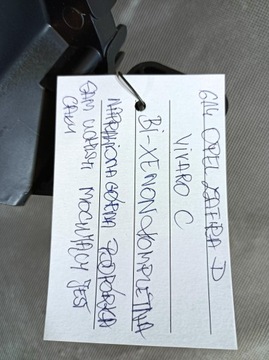 G14 OPEL ZAFIRA D
VIVARO C
Bi-XENON KOMPLETNA
NAPRAWIONA GÓRNA PODPÓRKA
SAM UCHWYT MOCUJĄCY JEST
CAŁY